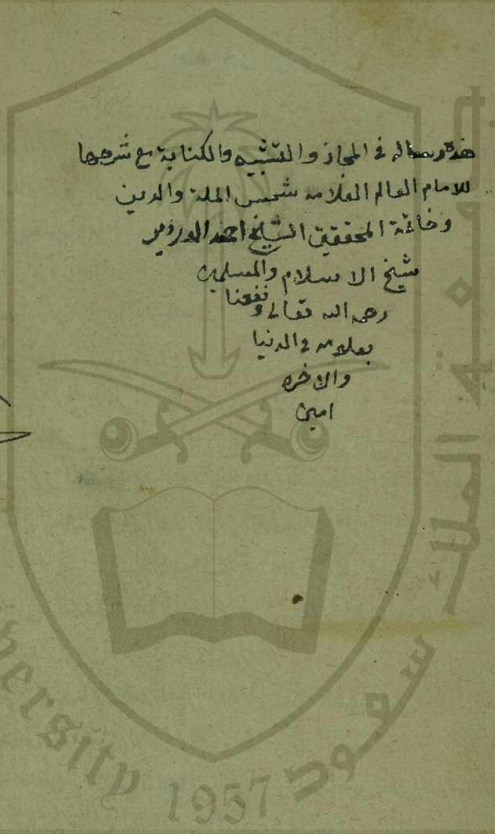 هذه رساله في المجاز والتشبيه والكناية مع شرحها
للامام العالم العلامه شمس الملة والدين
وخاتمة المحققين الشيخ احمد الدردير
شيخ الاسلام والمسلمين
رحمه الله تعالى ونفعنا
بعلومه في الدنيا
والاخره
امين
جامعة الملك سعود
University
1957